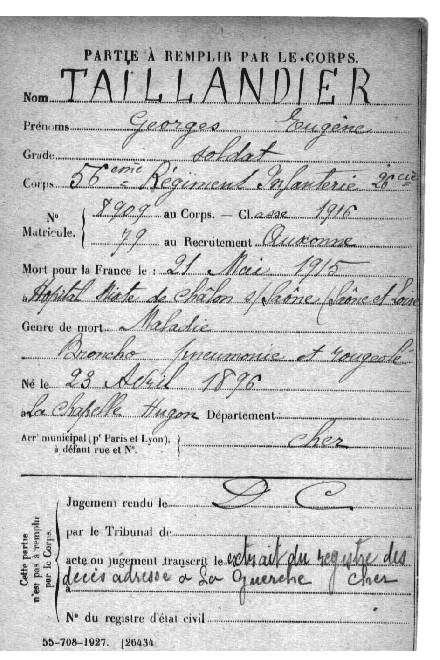 PARTIE À REMPLIR PAR LE CORPS.
Nom TAILLANDIER
Prénoms Georges Eugène
Grade soldat
Corps 56ème Régiment Infanterie 26 cie
N° Matricule. { 8909 au Corps. — Classe 1916
79 au Recrutement Auxonne
Mort pour la France le : 21 Mai 1915
à Hôpital Mixte de Châlon s/Saône (Saône et Loire
Genre de mort Maladie
Broncho pneumonie et rougeole
Né le 23 Avril 1896
à La Chapelle Hugon Département
Arr^t municipal (p^r Paris et Lyon), à défaut rue et N°. } Cher
Cette partie n'est pas à remplir par le Corps.
Jugement rendu le D C
par le Tribunal de
acte ou jugement transcrit le extrait du registre des
décès adressé à La Guerche Cher
N° du registre d'état civil
55-708-1927. [26434.